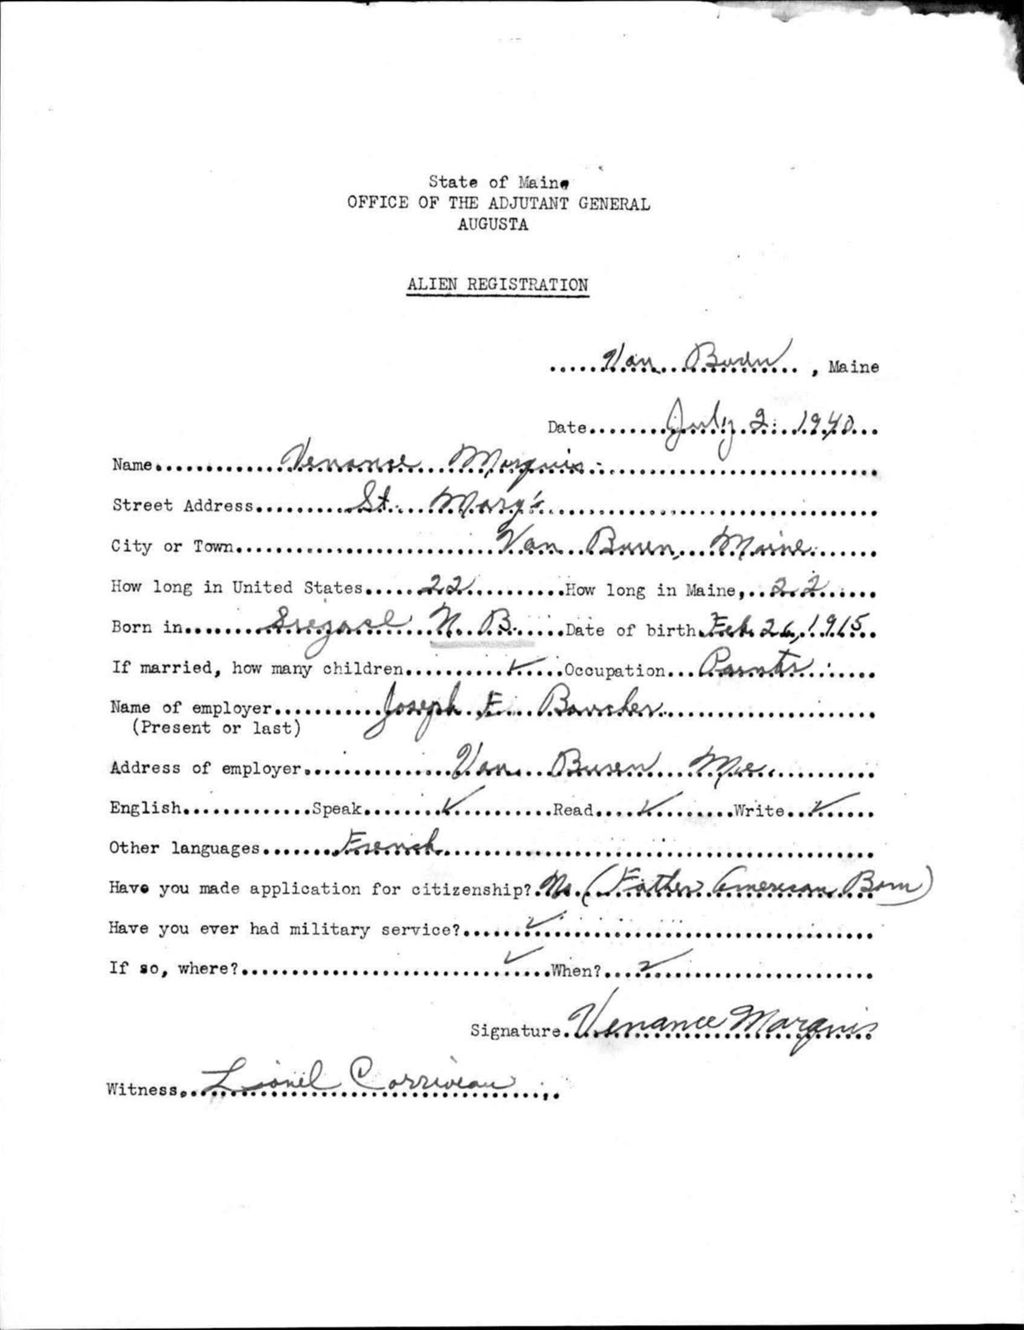 State of Maine
OFFICE OF THE ADJUTANT GENERAL
AUGUSTA
ALIEN REGISTRATION
Van Buren, Maine
Date July 2, 1940
Name Venance Marquis
Street Address St. Mary's
City or Town Van Buren, Maine
How long in United States 22 How long in Maine, 22
Born in N. B. Date of birth Feb. 26, 1915
If married, how many children ✓ Occupation
Name of employer Joseph E. Boucher
(Present or last)
Address of employer Van Buren Me.
English Speak ✓ Read ✓ Write ✓
Other languages French
Have you made application for citizenship? No. (Father American Born)
Have you ever had military service? ✓
If so, where? ✓ When? ✓
Signature Venance Marquis
Witness Lionel Corriveau